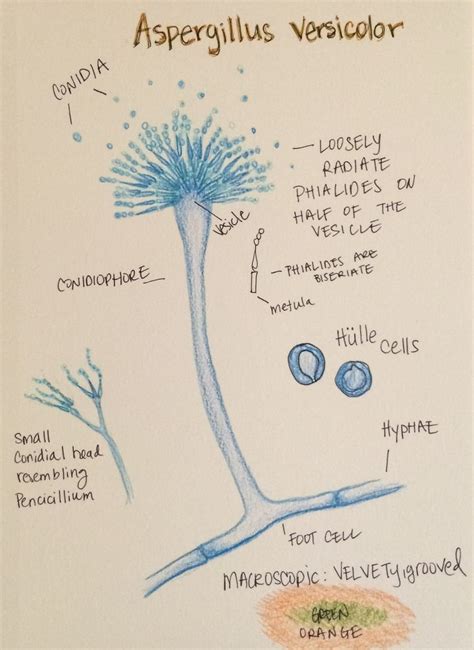 Aspergillus Versicolor
CONIDIA
LOOSELY
RADIATE
PHIALIDES ON
HALF OF THE
VESICLE
Vesicle
PHIALIDES ARE
BISERIATE
metula
CONIDIOPHORE
Hülle
Cells
Small
Conidial head
resembling
Pencicillium
HYPHAE
FOOT CELL
MACROSCOPIC: VELVETY, grooved
GREEN
ORANGE